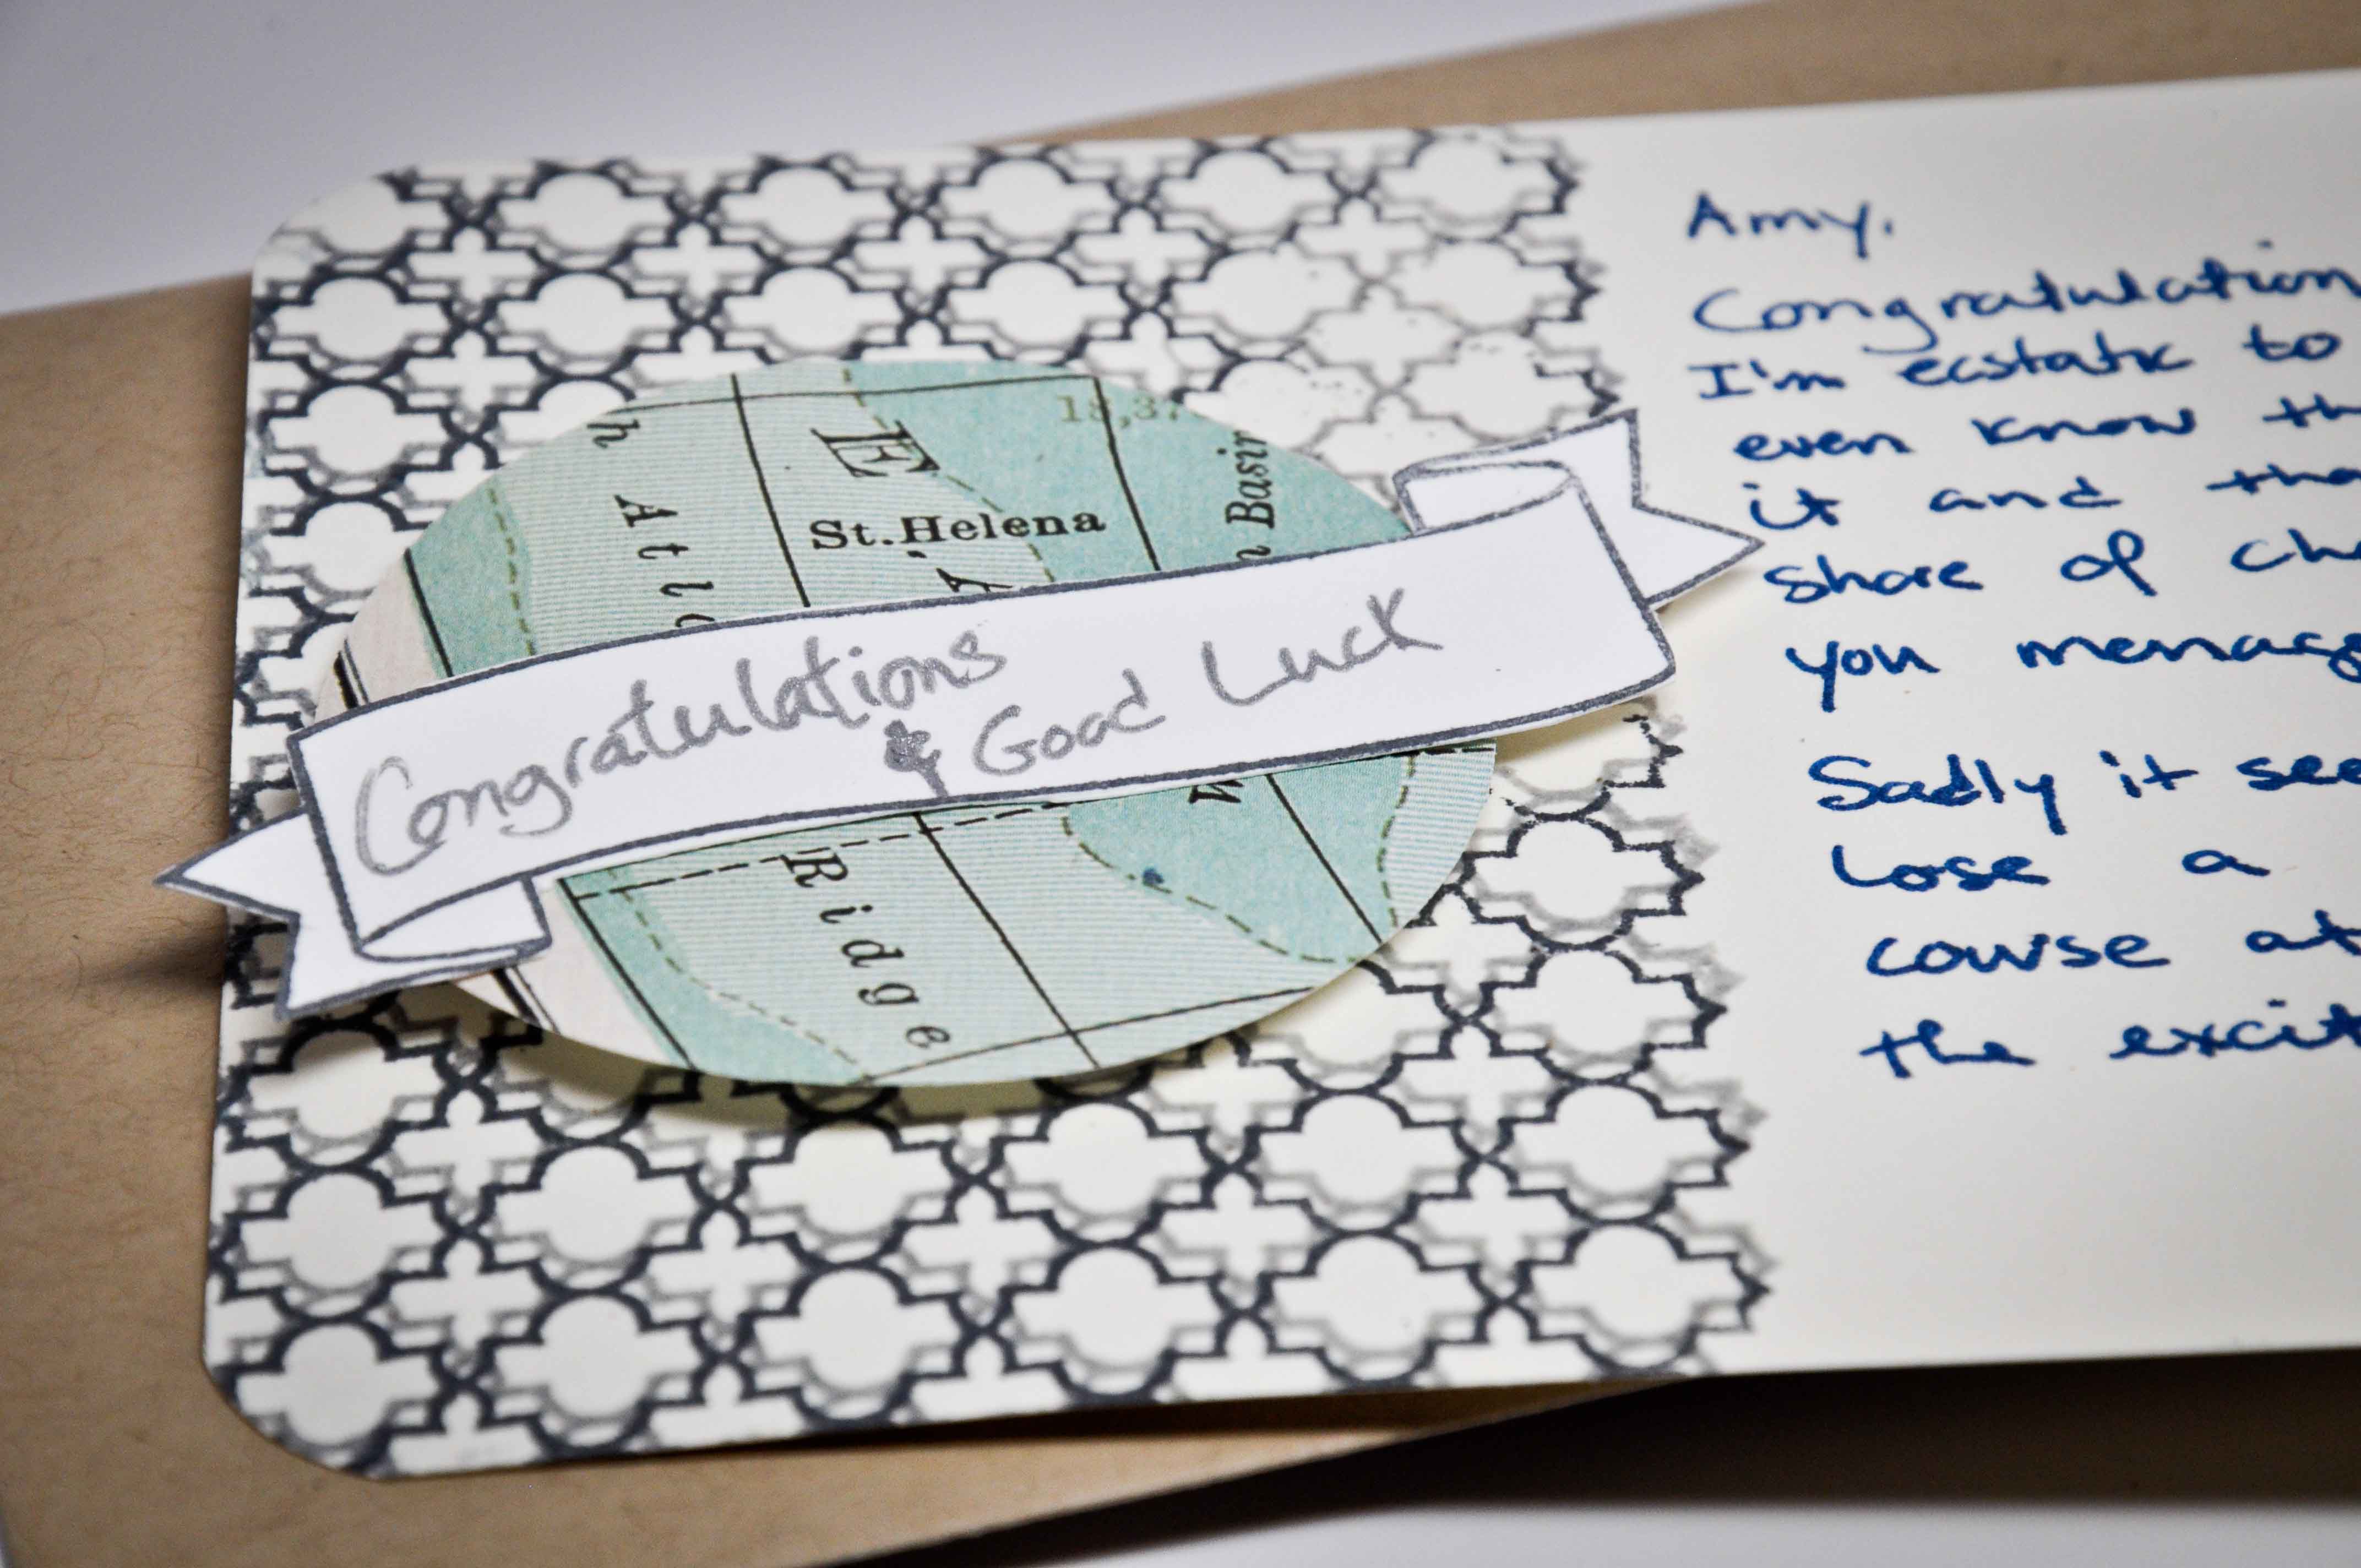 18,37
h
E
Basin
St. Helena
Atl
Congratulations
& Good Luck
Ridge
Amy,
Congratulation
I'm ecstatic to
even know th
it and tha
share of ch
you menag
Sadly it see
Lose a
course at
the excit